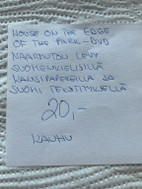 HOUSE ON THE EDGE
OF THE PARK - DVD
NAARMUTON LEVY
SUOMENKIELISILLÄ
KANSIPAPEREILLA JA
SUOMI TEKSTITYKSELLÄ
20,-
KAUHU